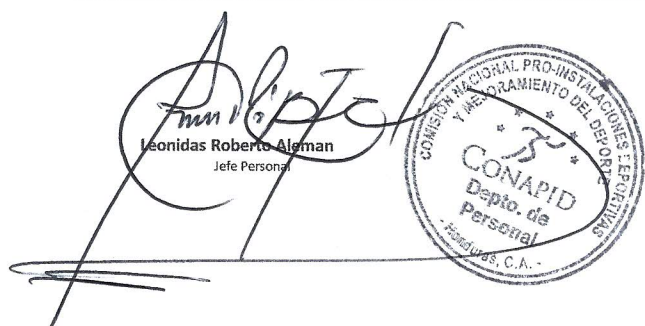 Leonidas Roberto Aleman
Jefe Personal
COMISIÓN NACIONAL PRO-INSTALACIONES DEPORTIVAS
Y MEJORAMIENTO DEL DEPORTE
CONAPID
Depto. de
Personal
- Honduras, C.A. -